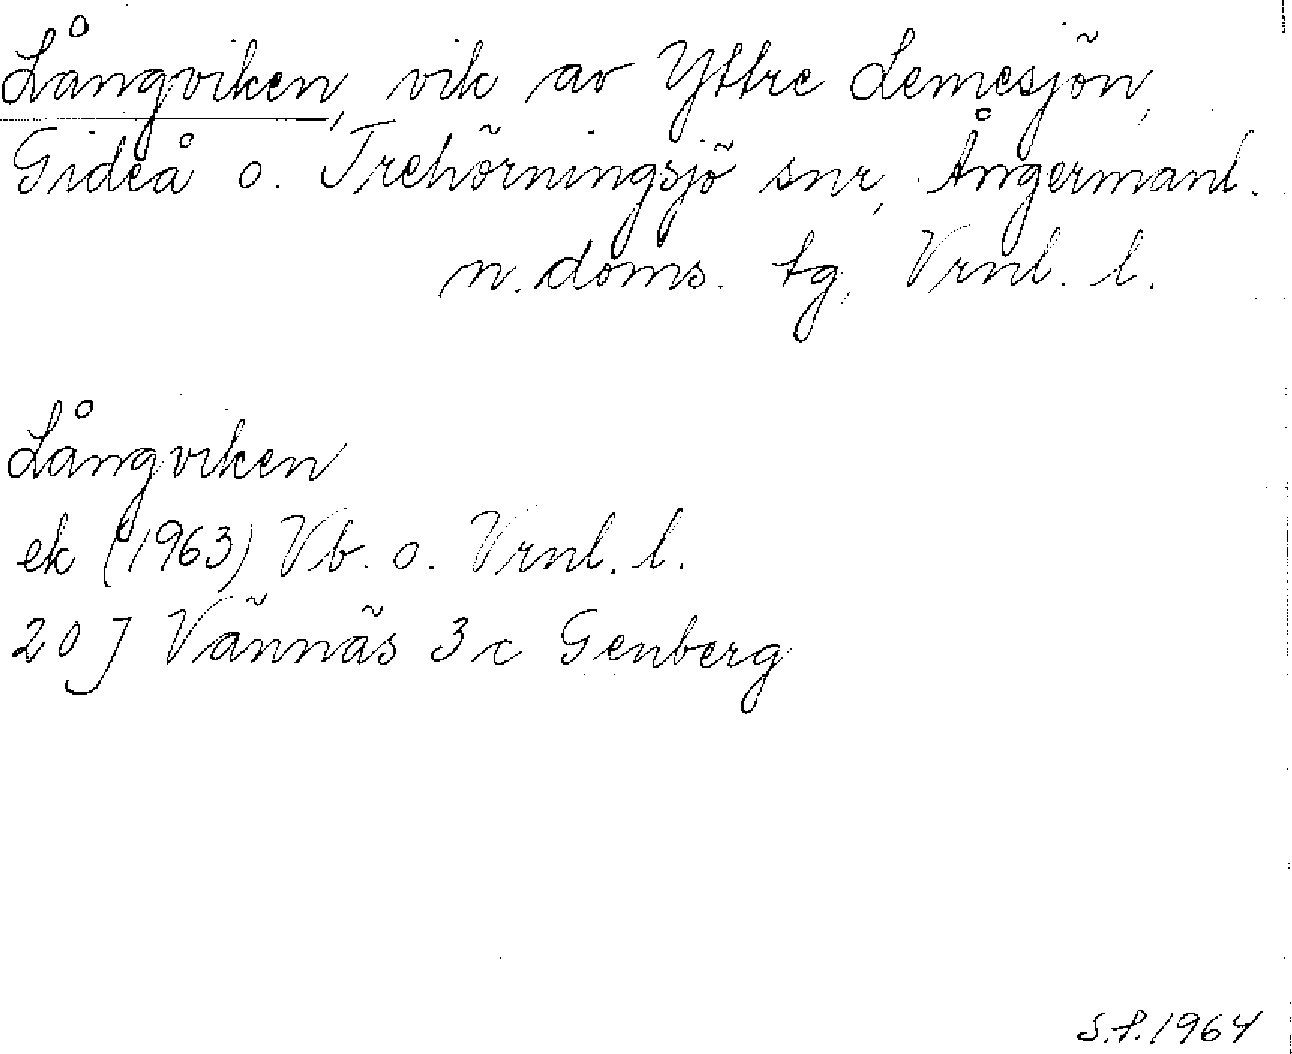 Långviken, vik av Yttre Lemesjön,
Gideå o. Trehörningsjö snr, Ångermanl.
n. doms. tg, Vrnl. l.
Långviken
ek (1963) Vb. o. Vrnl. l.
20 J Vännäs 3 c Genberg
S.P. 1964